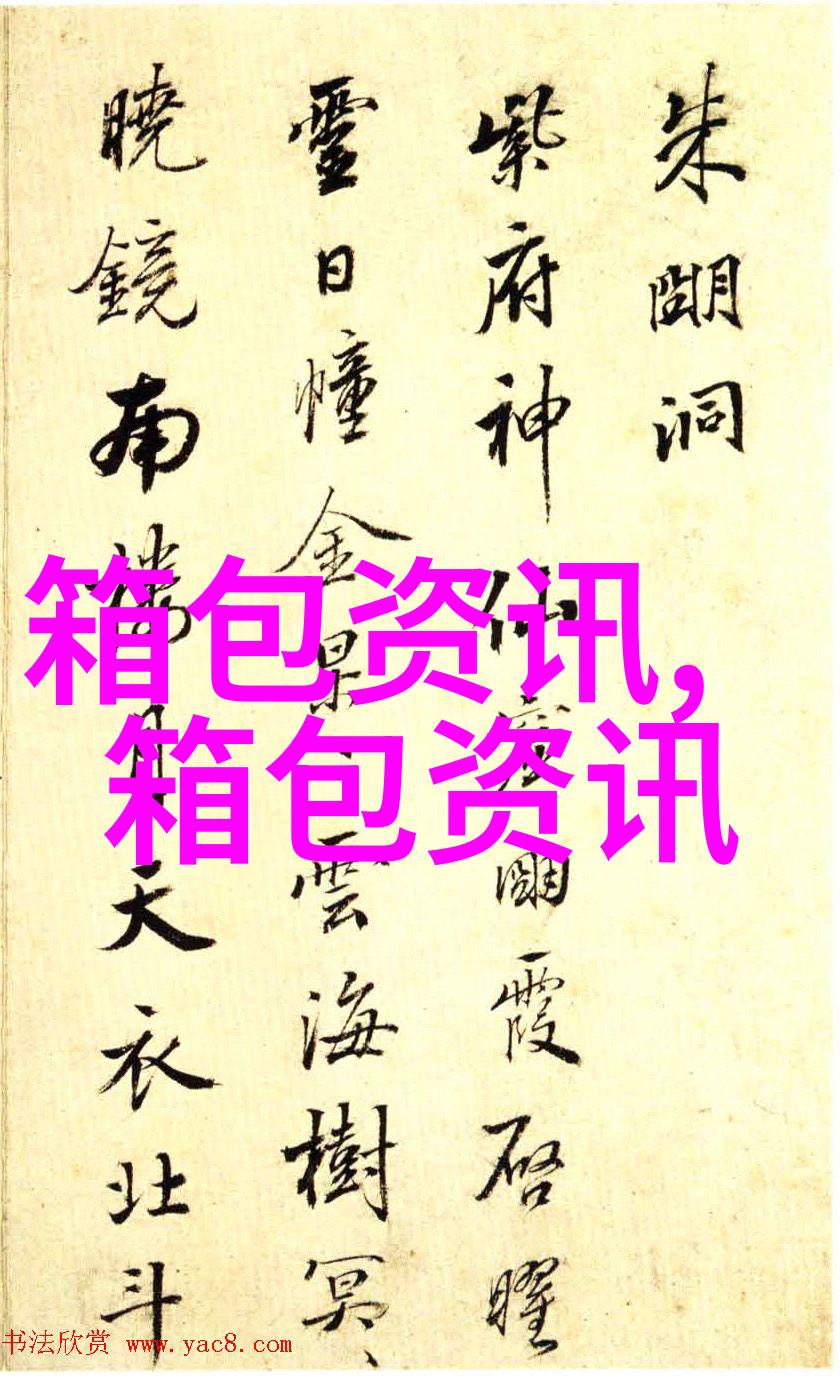 朱朙洞
紫府神仙朙霞启曜
霊日幢金杲々雲海樹冥々
曉鏡南月天衣北斗
箱包资讯,
箱包资讯
书法欣赏 www.yac8.com